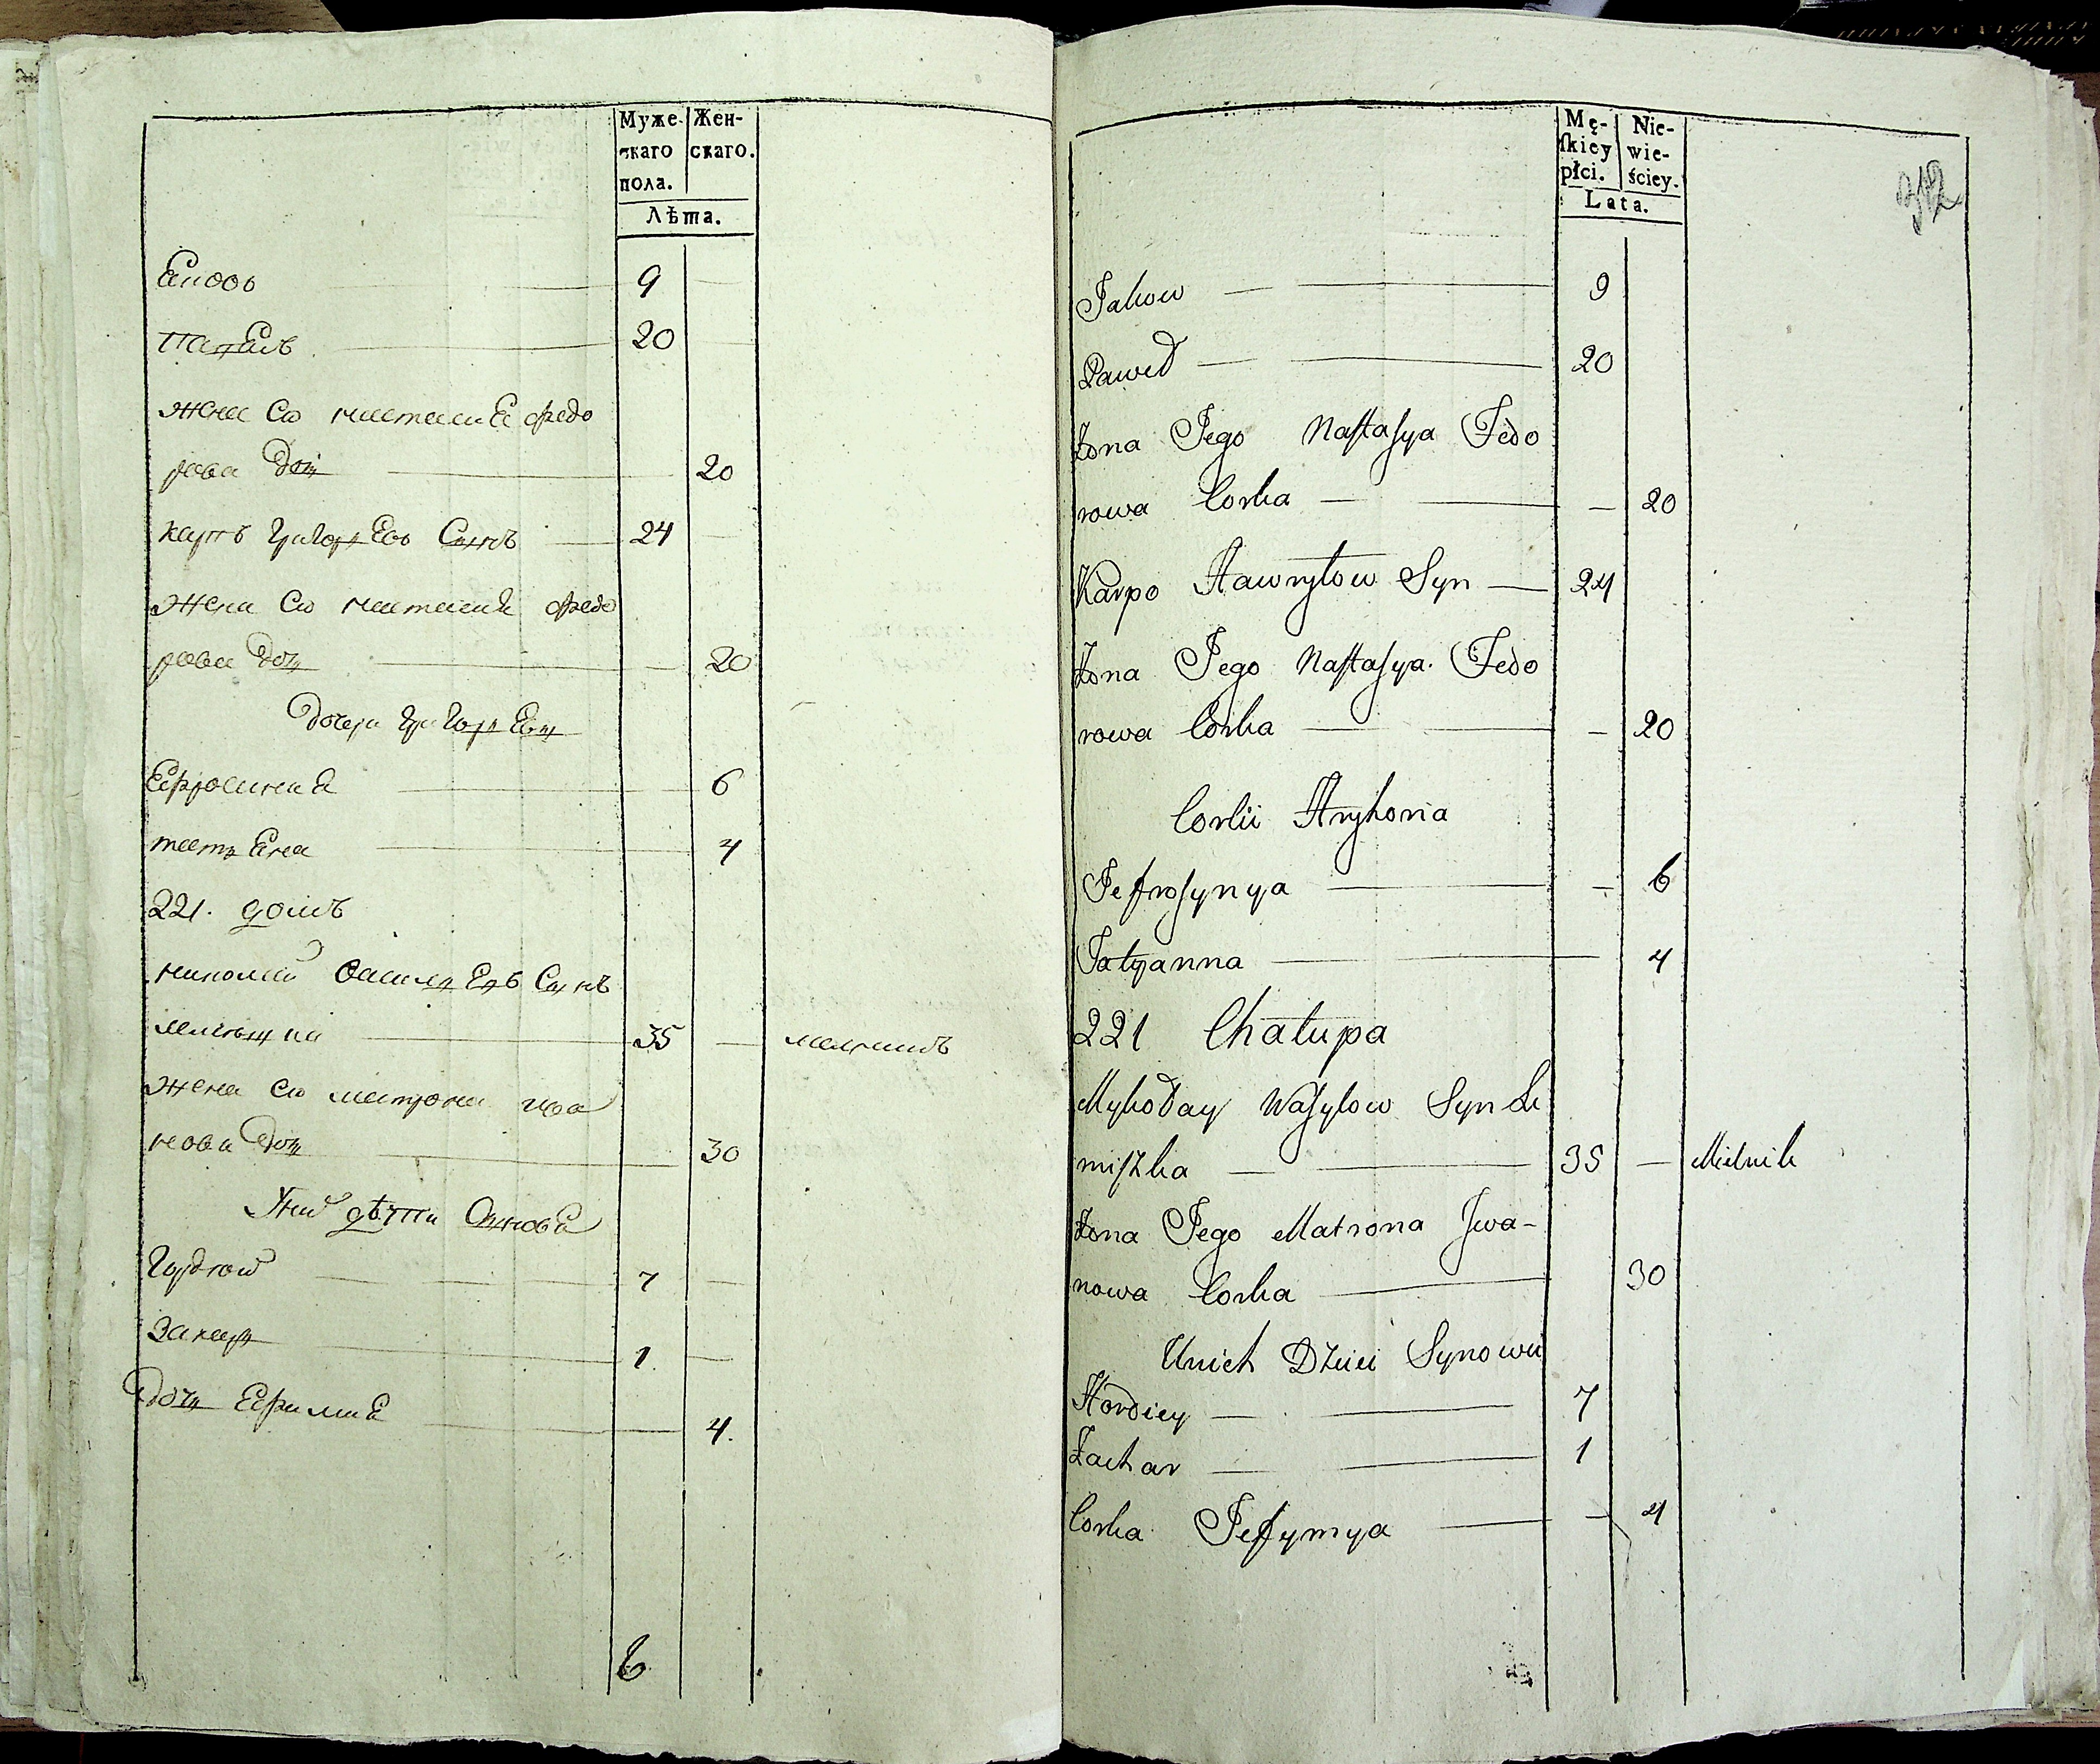 Муже- Жен-
скаго скаго.
пола.
Лѣта.
Яковъ 9
Павелъ 20
жена Его настасия федо
рова Доч 20
карпъ григоріевъ Сынъ 24
Жена Его настасия федо
рова доч 20
дочери григория
Ефросиния 6
татяна 4
221. домъ
николай василиевъ Сынъ
35 — мелникъ
жена Его матрона ива
нова доч 30
У них дѣти Сыновя
Гордей 7 —
Захар 1. —
доч Ефимия 4.
6
Mę- Nie-
ſkiey wie-
płci. ściey.
Lata.
312
Jakow 9
Paweł 20
Żona Jego Naſtaſya Fedo
rowa Corka — 20
Karpo Hawryłow Syn 24
Żona Jego Naſtaſya Fedo
rowa Corka — 20
Corki Hryhoria
Jefroſynya — 6
Tatyanna 4
221 Chałupa
Mykołay Waſylow Syn Kli
miſzka 35 — Mielnik
Żona Jego Matrona Jwa-
nowa Corka 30
Unich Dzieci Synowie
Hordiey 7
Zachar 1
Corka Jefymya — 4